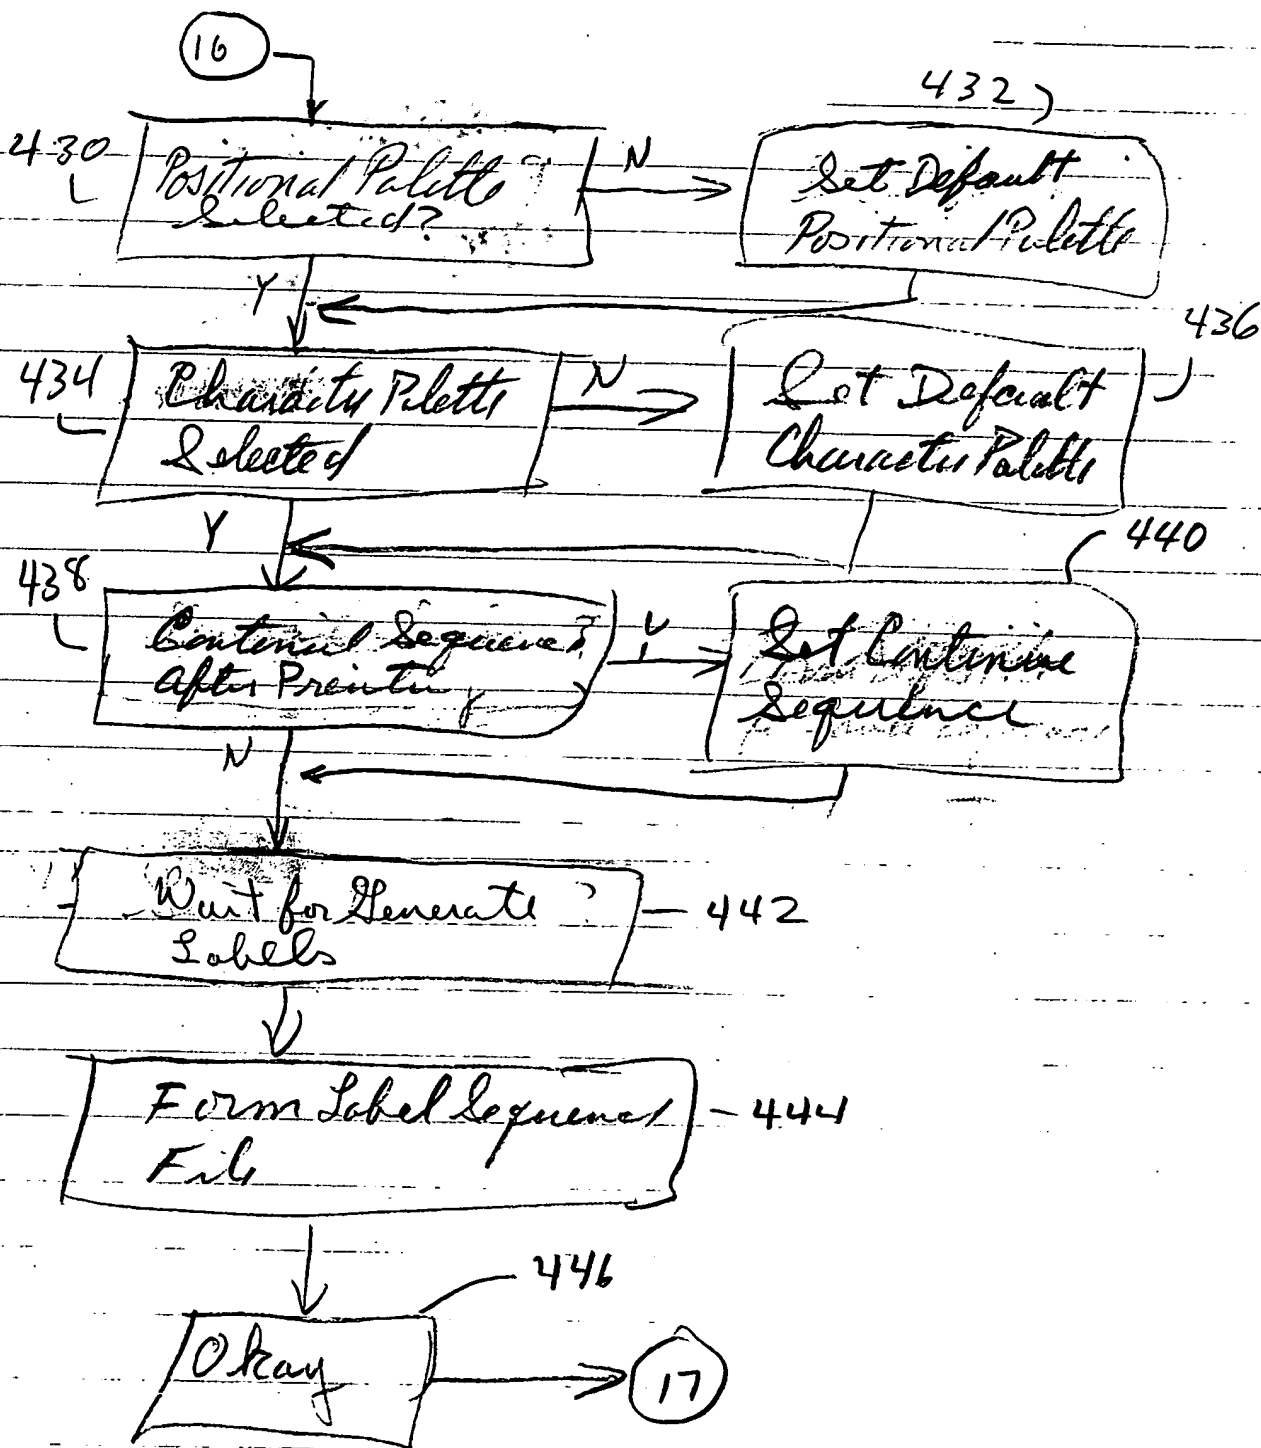 16
432
430
Positional Palette
Selected?
N
Set Default
Positional Palette
Y
436
434
Character Palette
Selected
N
Set Default
Character Palette
Y
440
438
Sequence?
After Printing
Set Continue
Sequence
N
Wait for Generate ?
Labels
442
Form Label Sequence
File
444
446
Okay
17